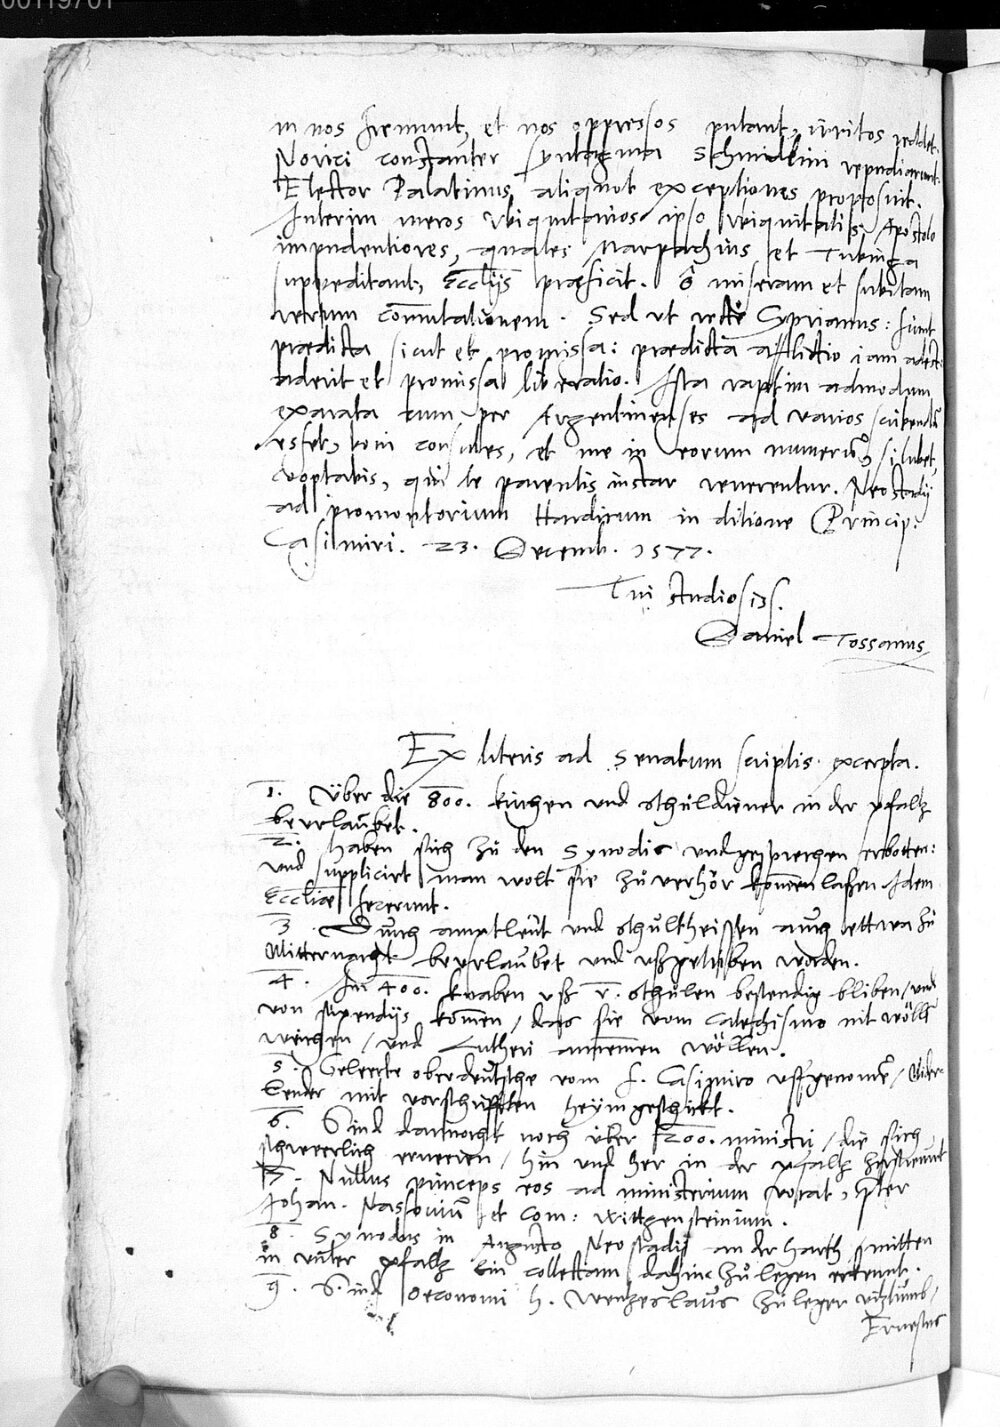 00119701
in nos fremunt, et nos oppressos putant, irritos reddet.
Norici constanter syntagma Schmidlini repudiarunt.
Elector Palatinus aliquot exceptiones proposuit.
Interim meros Ubiquitarios ipso ubiquitatis Apostolo
impudentiores, quales Marpachius et Tubinga
suppeditant, Eccliis præficit. ô miseram et subitam
rerum commutationem. Sed ut recte Cyprianus: sunt
prædicta sicut et promissa: prædicta afflictio iam adest:
aderit et promissa liberatio. Ista raptim admodum
exarata cum per Argentinenses ad varios scribendū
esset, boni consules, et me in eorum numerū, si lubet,
cooptabis, qui te parentis instar venerentur. Neostadij
ad promontorium Hardicum in ditione Princip:
Casimiri. 23. Decemb. 1577.
Tui studiosiss.
Daniel Tossanus
Ex literis ad Senatum scriptis excerpta.
1. Über die 800. kirchen und schuldiener in der pfaltz
beurlaubet.
2. Haben sich zu den Synodis und gesprechen erbotten:
und supplicirt man wolt sie zu verhör kommen laßen Idem
Eccliæ fecerunt.
3. Durch amptleüt und schultheissen auch ettwa zu
Mitternacht beurlaubet und ußgetriben worden.
4. In 400. knaben uß v. schulen bestendig bliben / und
von stipendijs kommen / das sie vom Catechismo nit wölln
weichen / und Lutheri annemen wöllen.
5. Gelerte oberdeutsche vom f. Casimiro uffgenomē / Nider-
lender mit vorschrifften heym geschickt.
6. Sind dannocht noch über 200. ministri / die sich
schwerlich erneren / hin und her in der pfaltz zerstreuwt
7. Nullus princeps eos ad ministerium vocat, præter
Johan. Nassoviū et Com: Wittgensteinium.
8. Synodus in Augusto Neostadij an der harth mitten
in unter pfaltz ein collectam dahin zu legen erkennt.
9. Sind Oeconomi H. Wenzeslaus Zuleger
Ernestus